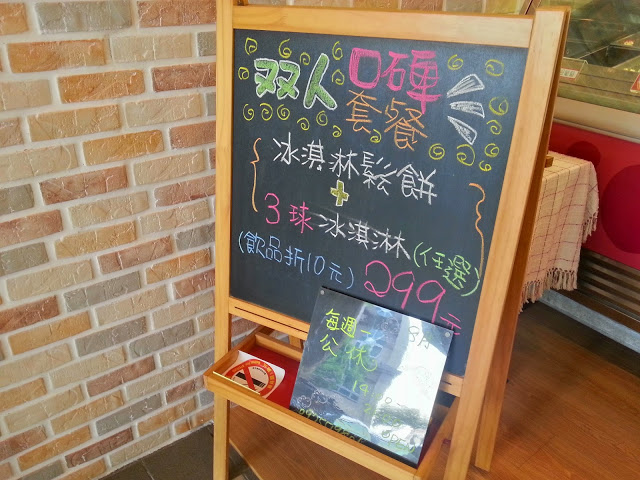 双人口碑
套餐
冰淇淋鬆餅
+
3球冰淇淋(任選)
(飲品折10元) 299元
每週一 8月
公休